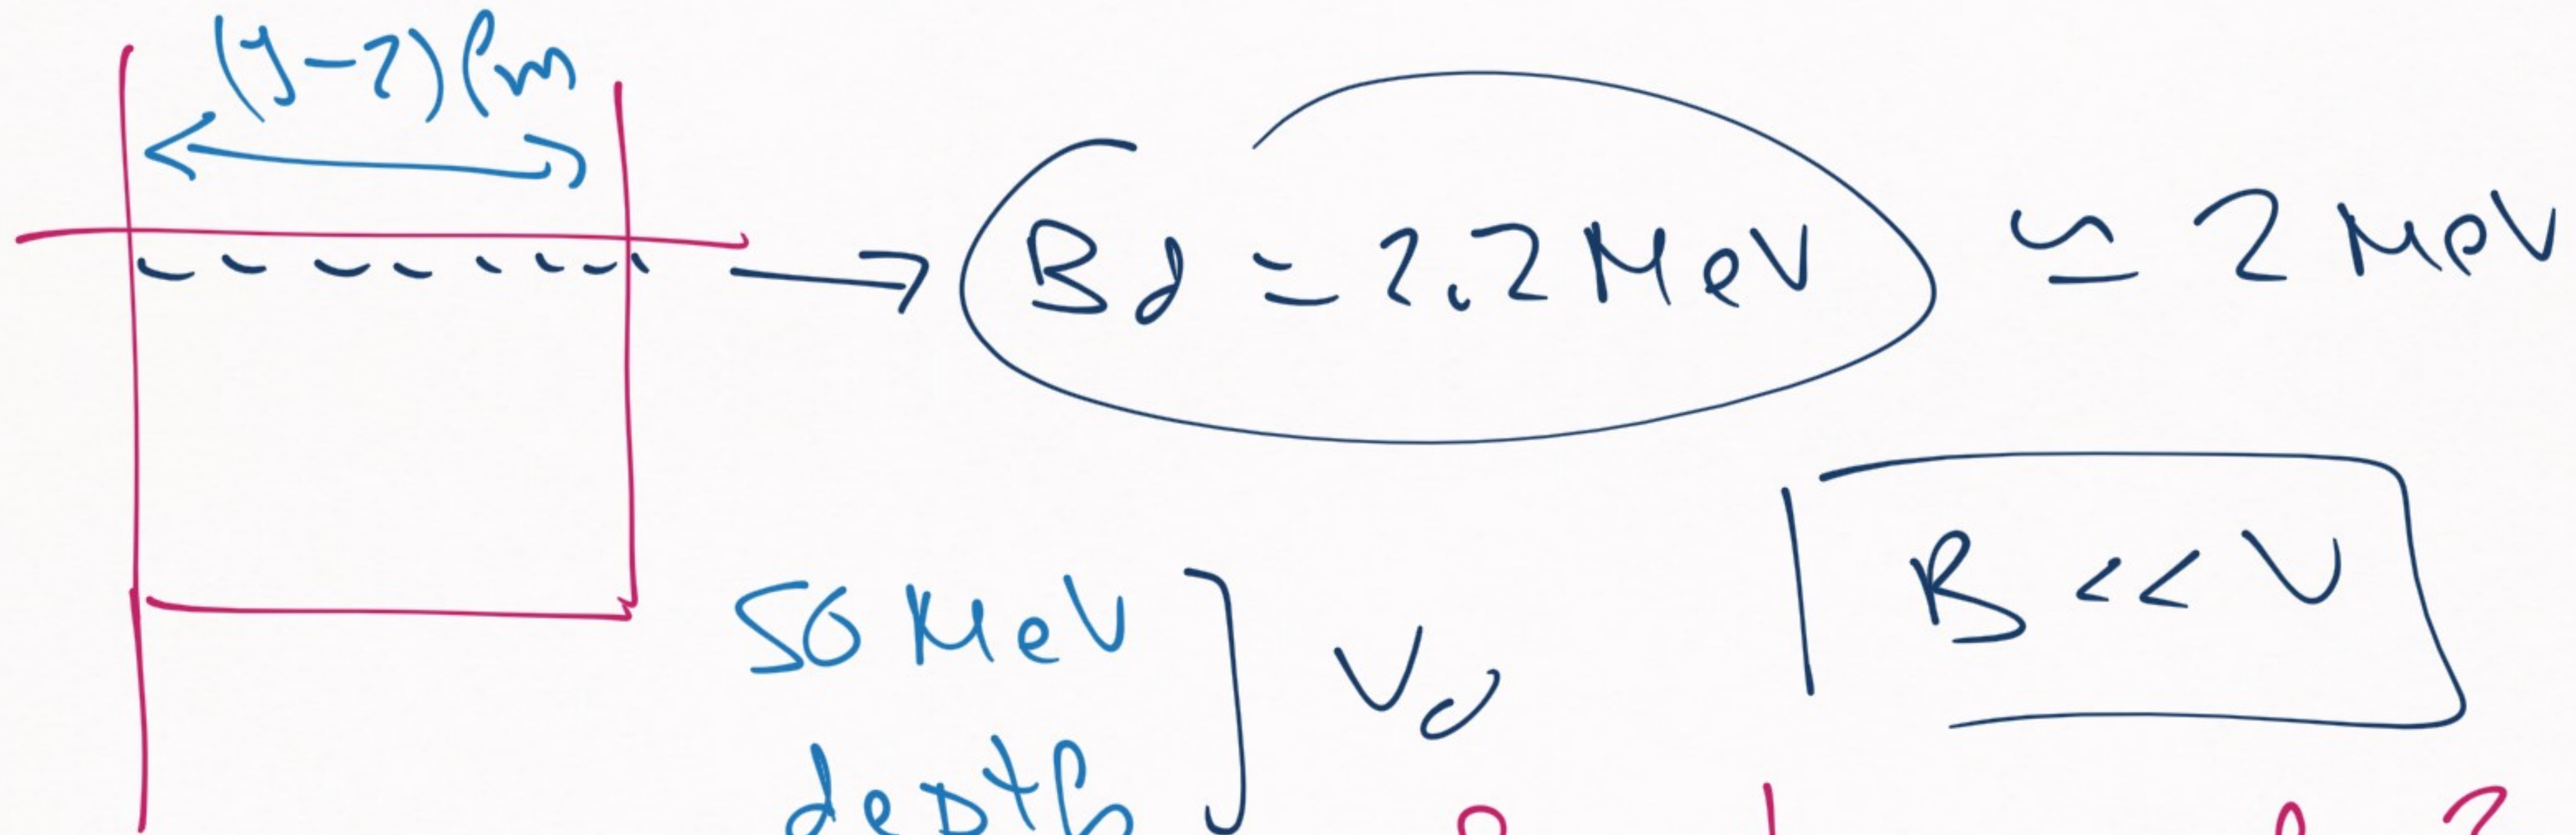 (1-2) fm
Bd = 2.2 MeV ≃ 2 MeV
B << V
50 MeV
depth
V0